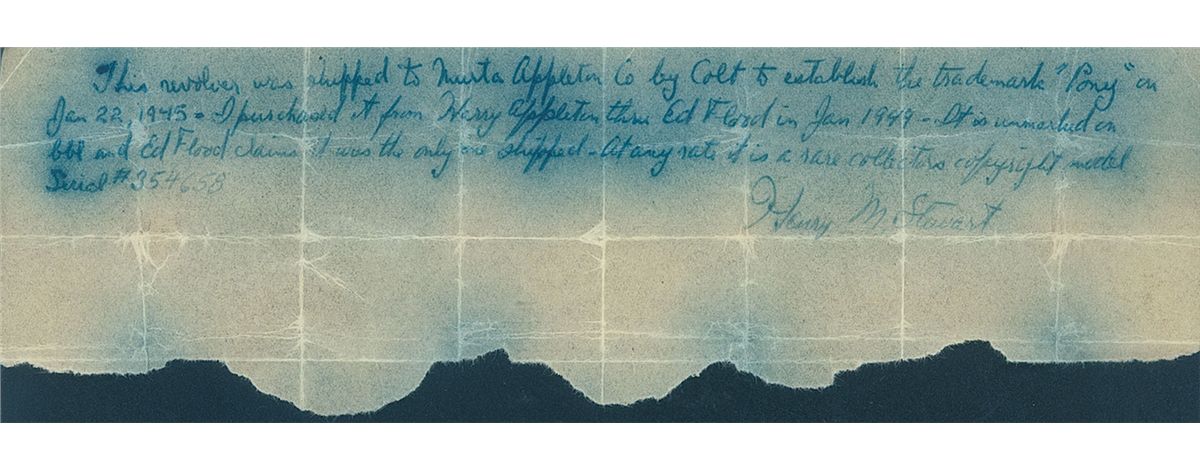 This revolver was shipped to Murta Appleton Co by Colt to establish the trademark "Pony" on
Jan 22, 1945 - I purchased it from Harry Appleton thru Ed Flood in Jan 1949 - It is unmarked on
bbl and Ed Flood claims it was the only one shipped - At any rate it is a rare collectors copyright model
Serial # 354658
Henry M. Stewart